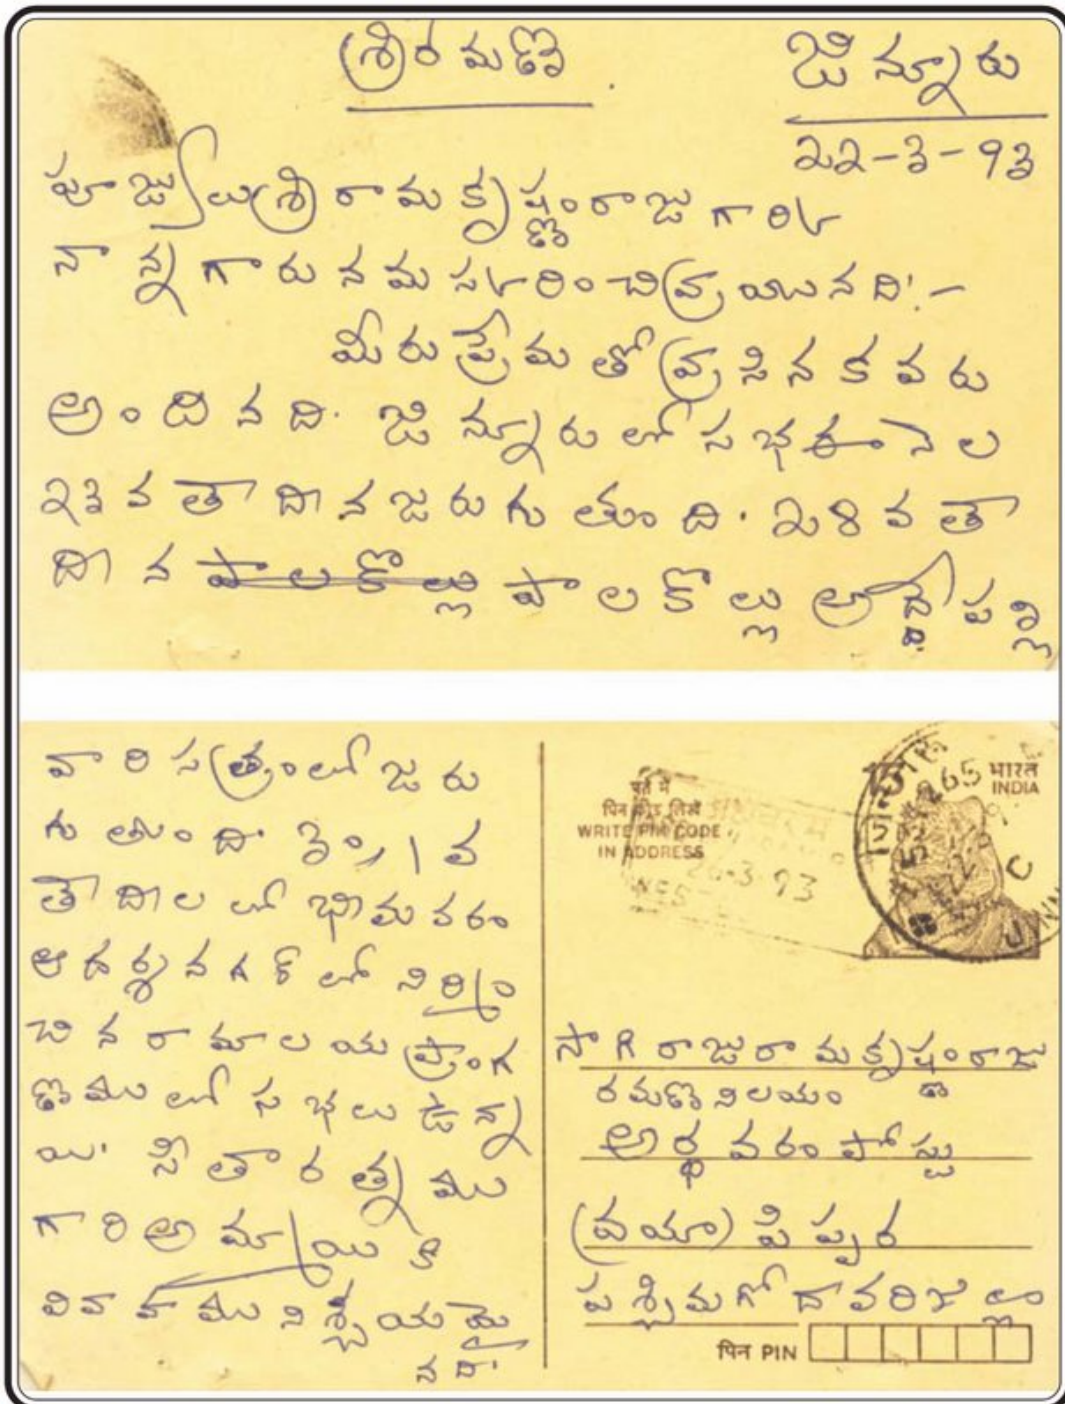 శ్రీరమణ
జిన్నూరు
22-3-93
పూజ్యులుశ్రీ రామకృష్ణంరాజు గారికి
నాన్నగారు నమస్కరించి వ్రాయునది:-
మీరు ప్రేమతో వ్రాసిన కవరు
అందినది. జిన్నూరులో సభ ఈ నెల
23వ తాదీన జరుగుతుంది. 28వ తా
దీన పాలకొల్లు పాలకొల్లు అద్దేపల్లి
వారి సత్రంలో జరు
గుతుంది. 30, 1వ
తాదీలలో భీమవరం
ఆదర్శనగర్ లో నిర్మిం
చిన రామాలయ ప్రాంగ
ణములో సభలు ఉన్నా
యి. సీతారత్నము
గారి అమ్మాయికి
వివాహము నిశ్చయమై
నది.
भारत
INDIA
पते में
पिन कोड लिखें
WRITE PIN CODE
IN ADDRESS
26-3-93
సాగిరాజు రామకృష్ణంరాజు
రమణ నిలయం
అర్ధవరం పోస్టు
(వయా) పిప్పర
పశ్చిమగోదావరి జిల్లా
पिन PIN